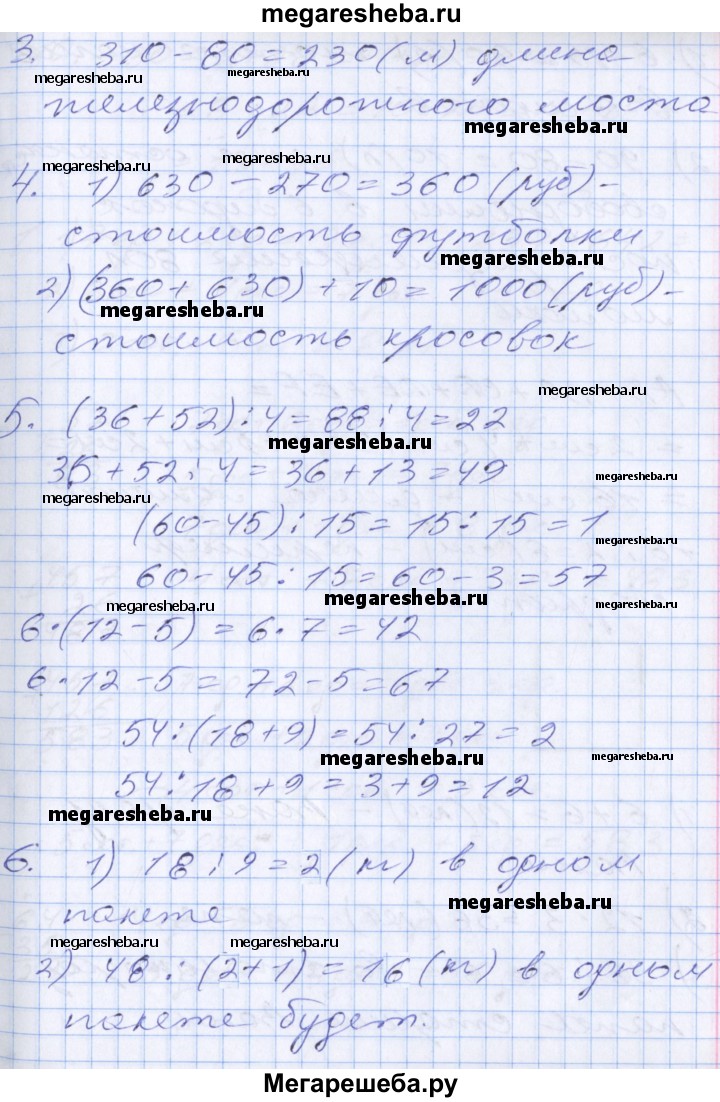 megaresheba.ru
3. 310 - 80 = 230 (м) длина
megaresheba.ru megaresheba.ru
железнодорожного моста
megaresheba.ru
megaresheba.ru megaresheba.ru
4. 1) 630 - 270 = 360 (руб) -
стоимость футболки
megaresheba.ru
2) (360 + 630) + 10 = 1000 (руб) -
megaresheba.ru
стоимость кросовок
megaresheba.ru
5. (36 + 52) : 4 = 88 : 4 = 22
megaresheba.ru
36 + 52 : 4 = 36 + 13 = 49
megaresheba.ru
megaresheba.ru
(60 - 45) : 15 = 15 : 15 = 1
megaresheba.ru
60 - 45 : 15 = 60 - 3 = 57
megaresheba.ru megaresheba.ru megaresheba.ru
6 · (12 - 5) = 6 · 7 = 42
6 · 12 - 5 = 72 - 5 = 67
54 : (18 + 9) = 54 : 27 = 2
megaresheba.ru megaresheba.ru
54 : 18 + 9 = 3 + 9 = 12
megaresheba.ru
6. 1) 18 : 9 = 2 (т) в одном
megaresheba.ru
пакете
megaresheba.ru megaresheba.ru
2) 48 : (2 + 1) = 16 (т) в одном
пакете будет.
megaresheba.ru megaresheba.ru
Мегарешеба.ру